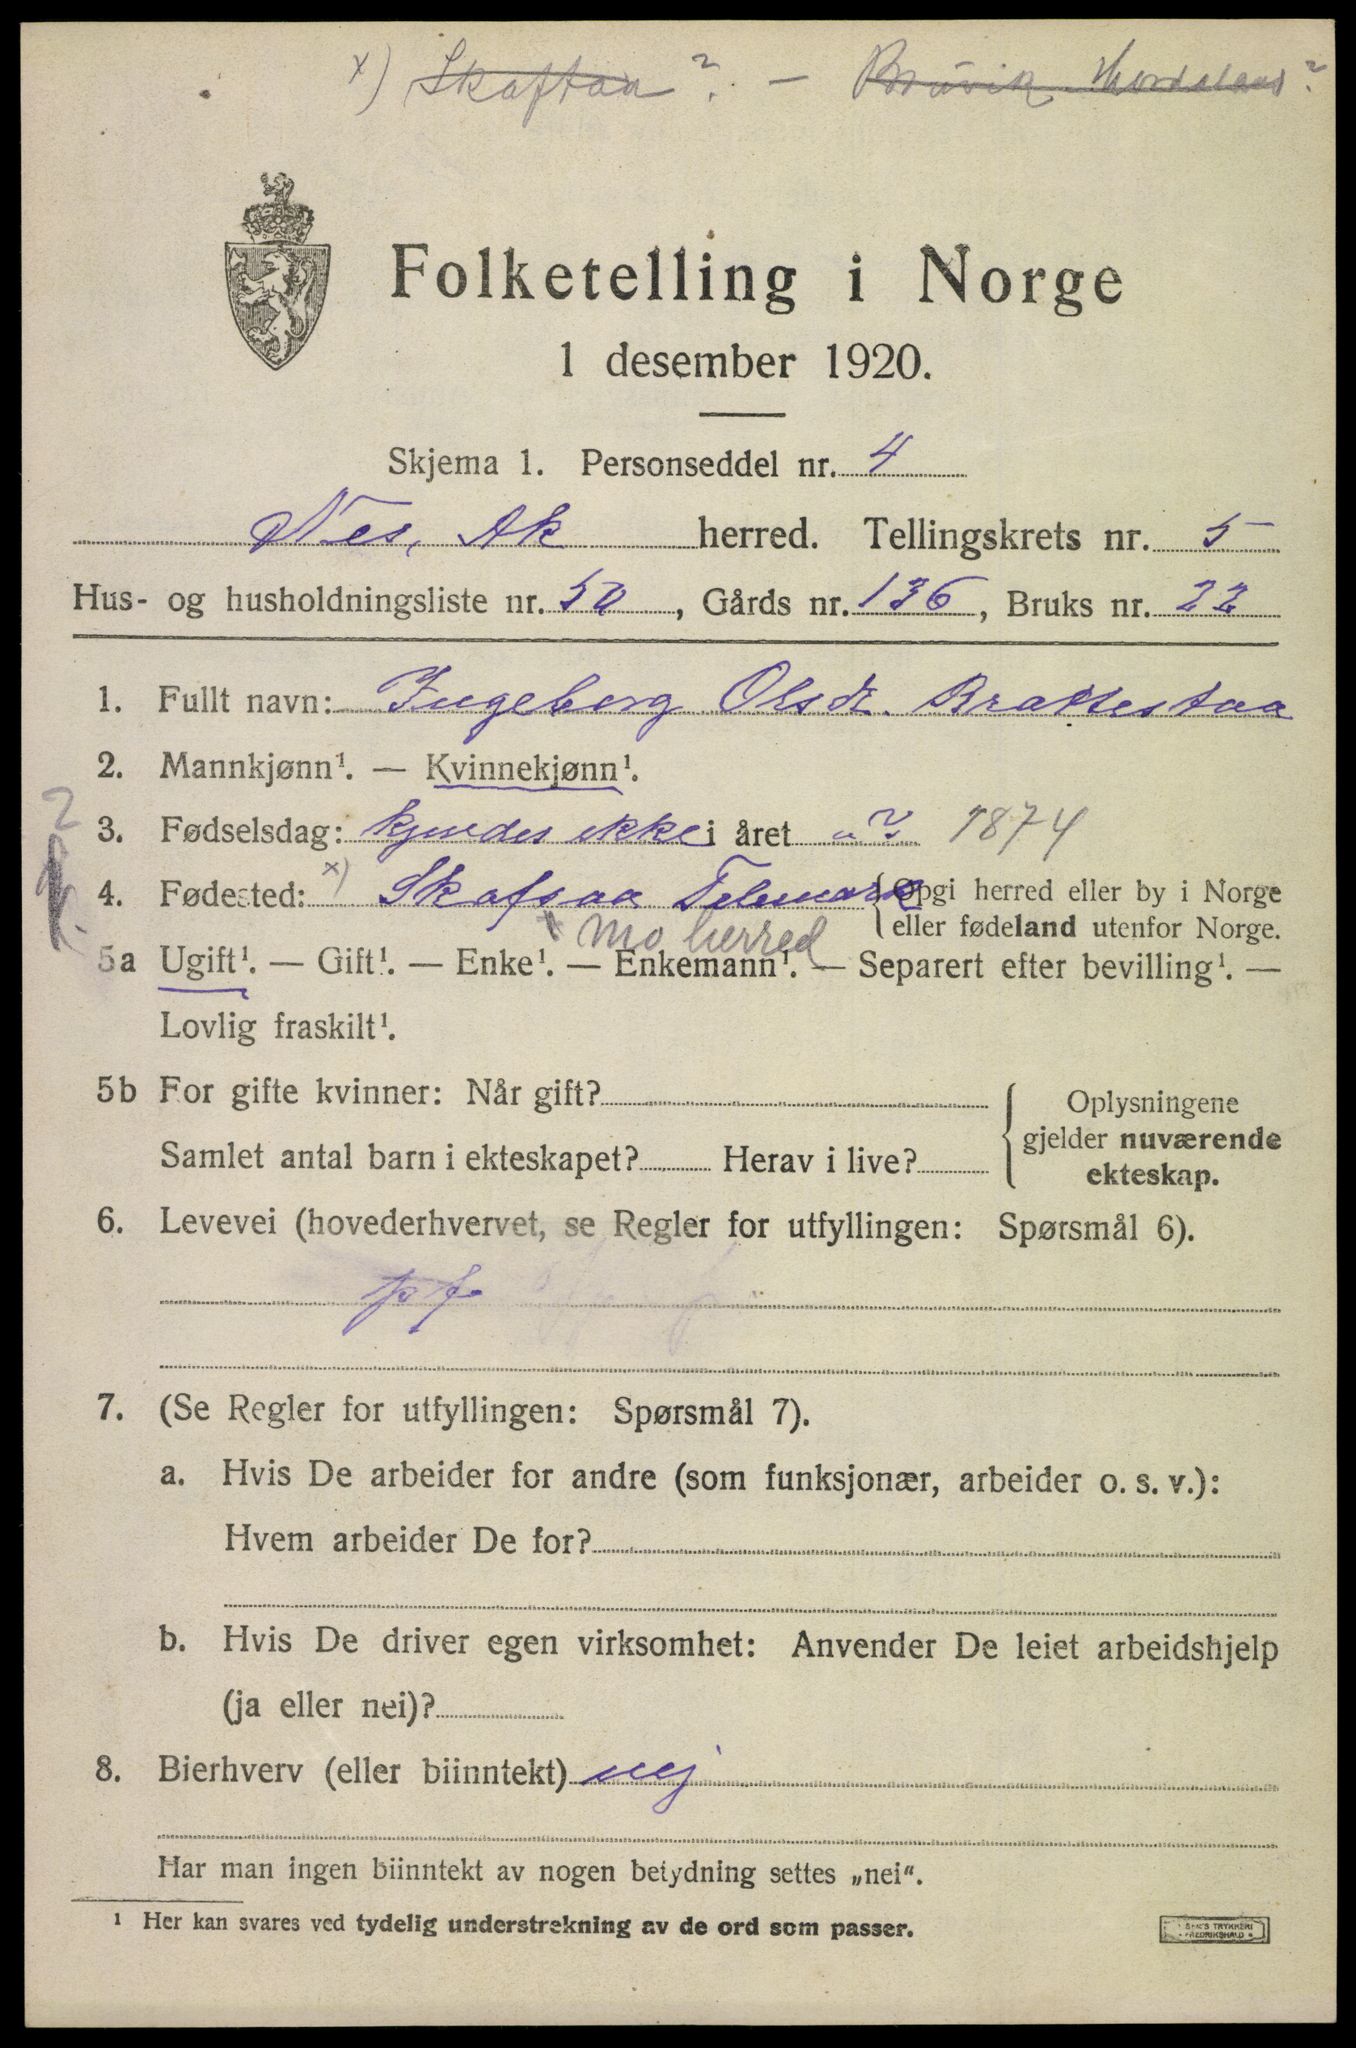 x) Skaftaa ? — Brūvik Hordaland ?
Folketelling i Norge
1 desember 1920.
Skjema 1. Personseddel nr. 4
Nes, Ak herred. Tellingskrets nr. 5
Hus- og husholdningsliste nr. 50, Gårds nr. 136, Bruks nr. 22
1. Fullt navn: Ingeborg Olsdt. Brattestaa
2. Mannkjønn¹. — Kvinnekjønn¹.
2
3. Fødselsdag: kjendes ikke i året " ? 1874
4. Fødested: x) Skafsaa Telemark {Opgi herred eller by i Norge
eller fødeland utenfor Norge.
x Mo herred
5a Ugift¹. — Gift¹. — Enke¹. — Enkemann¹. — Separert efter bevilling¹. —
Lovlig fraskilt¹.
5b For gifte kvinner: Når gift?
Samlet antal barn i ekteskapet? Herav i live?
Oplysningene
gjelder nuværende
ekteskap.
6. Levevei (hovederhvervet, se Regler for utfyllingen: Spørsmål 6).
pf
7. (Se Regler for utfyllingen: Spørsmål 7).
a. Hvis De arbeider for andre (som funksjonær, arbeider o. s. v.):
Hvem arbeider De for?
b. Hvis De driver egen virksomhet: Anvender De leiet arbeidshjelp
(ja eller nei)?
8. Bierhverv (eller biinntekt) nej
Har man ingen biinntekt av nogen betydning settes „nei".
¹ Her kan svares ved tydelig understrekning av de ord som passer.
TRYKKERI
FREDRIKSHALD